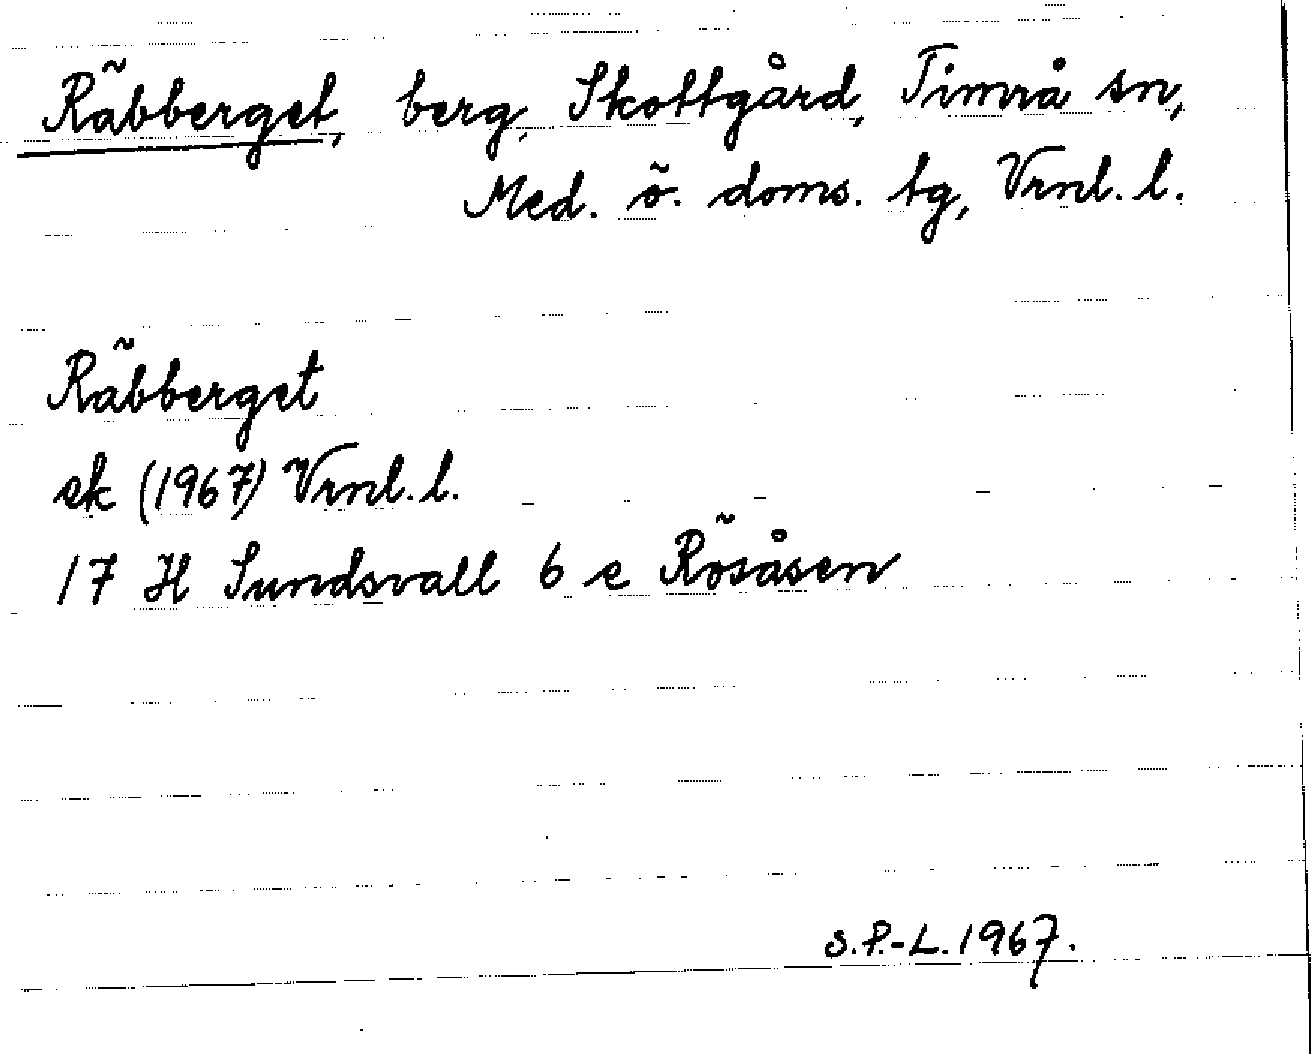 Räbberget, berg, Skottgård, Timrå sn,
Med. ö. doms. tg, Vrnl. l.
Räbberget
ek (1967) Vrnl. l.
17 H Sundsvall 6 e Rösåsen
S.P.-L. 1967.